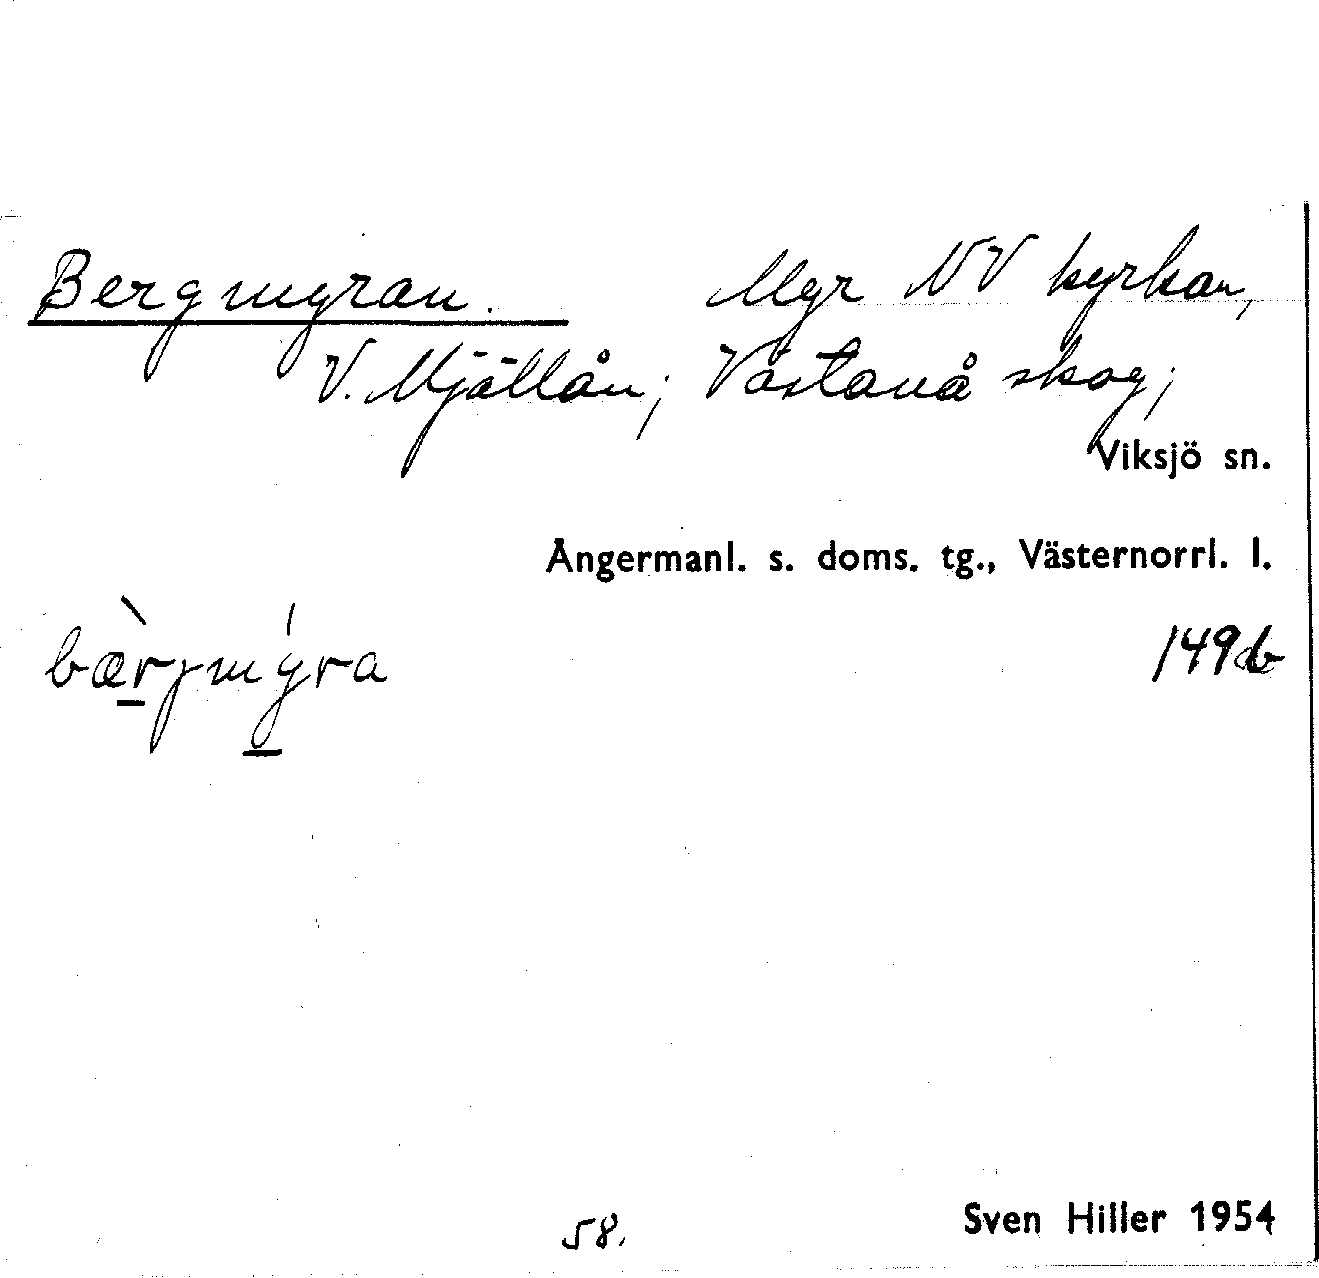 Bergmyran. Myr NV kyrkan,
V. Mjällån; Västanå skog;
Viksjö sn.
Ångermanl. s. doms. tg., Västernorrl. l.
bæ̀rjmýra 149b
58.
Sven Hiller 1954